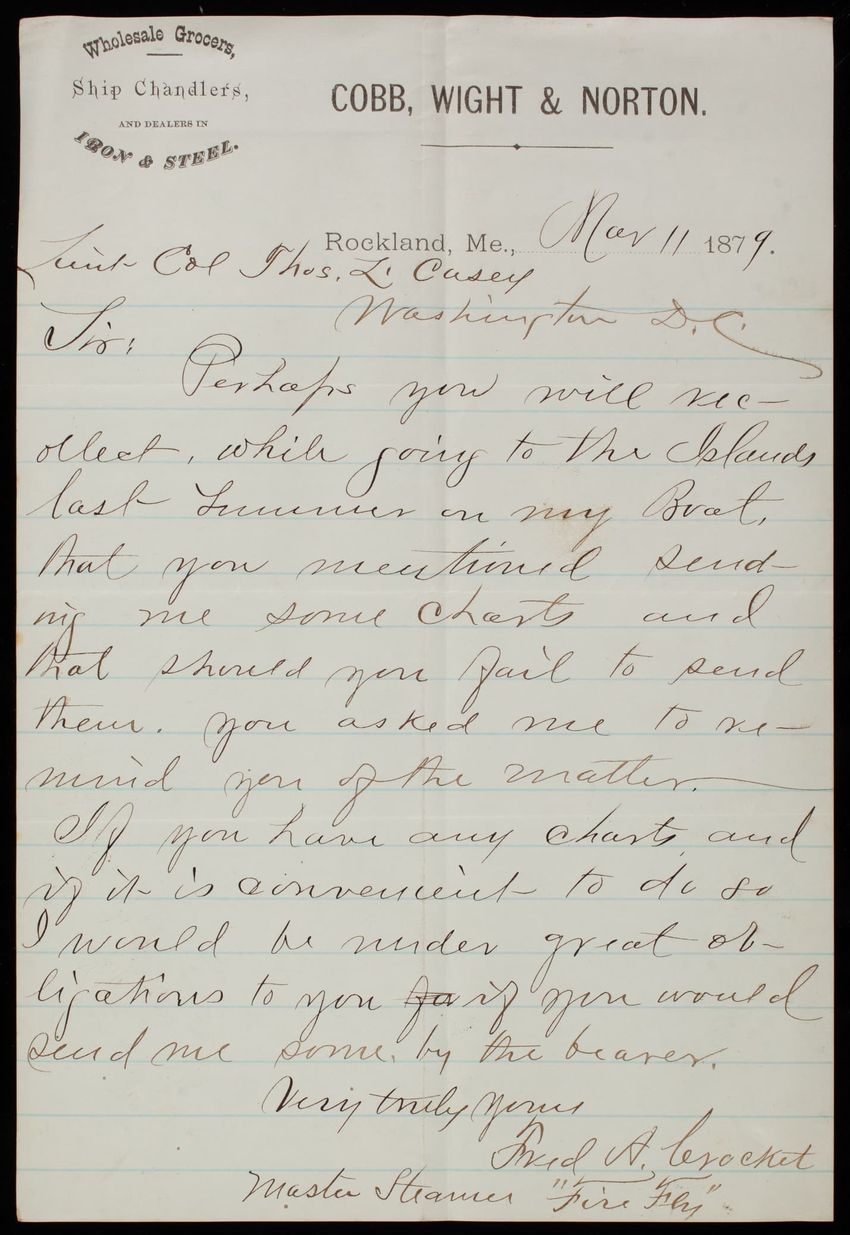 Wholesale Grocers,
Ship Chandlers,
AND DEALERS IN
IRON & STEEL.
COBB, WIGHT & NORTON.
Rockland, Me., Mar 11 1879.
Lieut Col Thos. L. Casey
Washington D.C.
Sir:
Perhaps you will rec-
ollect, while going to the Islands
last Summer on my Boat,
that you mentioned send-
ing me some charts and
that should you fail to send
them. you asked me to re-
mind you of the matter.
If you have any charts, and
if it is convenient to do so
I would be under great ob-
ligations to you fo if you would
send me some. by the bearer.
Very truly yours
Fred A. Crocket
Master Steamer "Fire Fly"